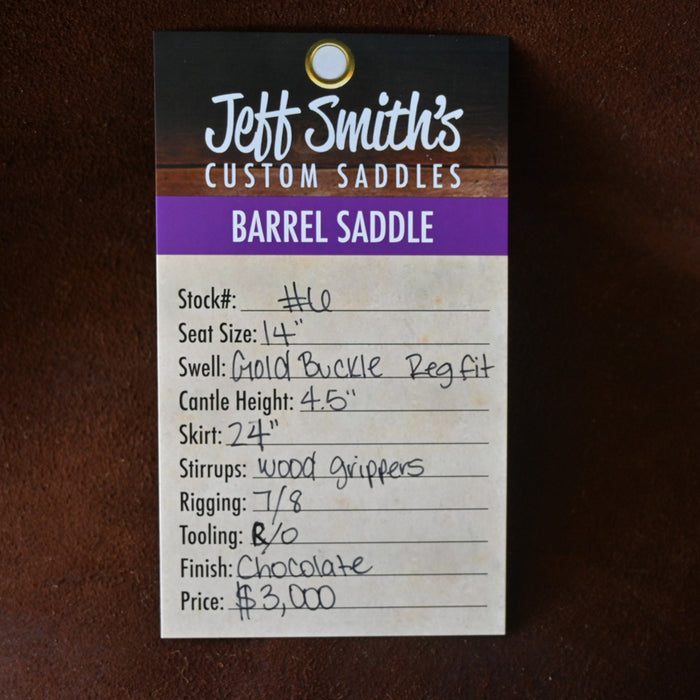 Jeff Smith's
CUSTOM SADDLES
BARREL SADDLE
Stock#: #6
Seat Size: 14"
Swell: Gold Buckle Reg fit
Cantle Height: 4.5"
Skirt: 24"
Stirrups: wood grippers
Rigging: 7/8
Tooling: R/O
Finish: Chocolate
Price: $3,000